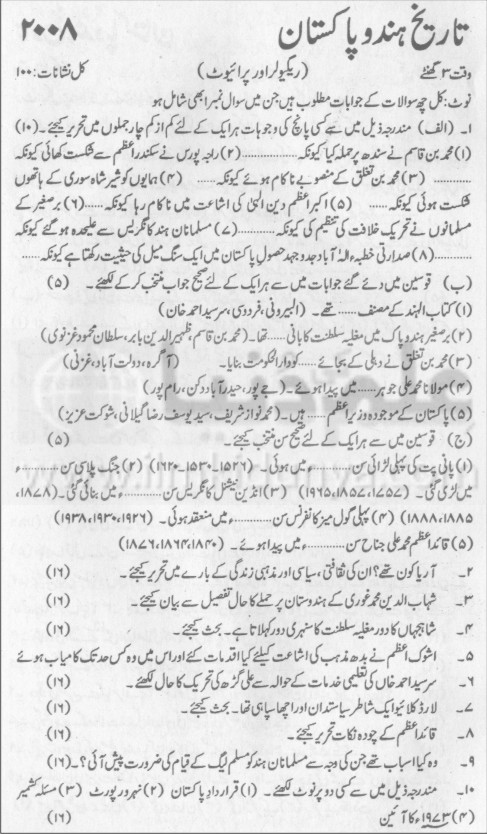 تاریخ ہند و پاکستان ۲۰۰۸
وقت ۳ گھنٹے (ریگولر اور پرائیوٹ) کل نشانات: ۱۰۰
نوٹ: کل چھ سوالات کے جوابات مطلوب ہیں جن میں سوال نمبر ا بھی شامل ہو
۱۔ (الف) مندرجہ ذیل میں سے کسی پانچ کی وجوہات ہر ایک کے لئے کم از کم چار جملوں میں تحریر کیجئے۔ (۱۰)
(۱) محمد بن قاسم نے سندھ پر حملہ کیا کیونکہ............ (۲) راجہ پورس نے سکندر اعظم سے شکست کھائی کیونکہ
............ (۳) محمد بن تغلق کے منصوبے ناکام ہوئے کیونکہ............ (۴) ہمایوں کو شیر شاہ سوری کے ہاتھوں
شکست ہوئی کیونکہ............ (۵) اکبر اعظم دین الٰہی کی اشاعت میں ناکام رہا کیونکہ............ (۶) برصغیر کے
مسلمانوں نے تحریک خلافت کی تنظیم کی کیونکہ............ (۷) مسلمان ہند کانگریس سے علیحدہ ہو گئے کیونکہ
............ (۸) صدارتی خطبہ الہٰ آباد جدوجہد حصول پاکستان میں ایک سنگ میل کی حیثیت رکھتا ہے کیونکہ............
(ب) قوسین میں دئے گئے جوابات میں سے ہر ایک کے لئے صحیح جواب منتخب کر کے لکھئے۔ (۵)
(۱) کتاب الہند کے مصنف ............ تھے۔ (البیرونی، فردوسی، سرسید احمد خان)
(۲) برصغیر ہند و پاک میں مغلیہ سلطنت کا بانی ............ تھا۔ (محمد بن قاسم، ظہیر الدین بابر، سلطان محمود غزنوی)
(۳) محمد بن تغلق نے دہلی کے بجائے ............ کو دار الحکومت بنایا۔ (آگرہ، دولت آباد، غزنی)
(۴) مولانا محمد علی جوہر ............ میں پیدا ہوئے۔ (جے پور، حیدر آباد دکن، رام پور)
(۵) پاکستان کے موجودہ وزیر اعظم ............ ہیں۔ (محمد نواز شریف، سید یوسف رضا گیلانی، شوکت عزیز)
(ج) قوسین میں سے ہر ایک کے لئے صحیح سن منتخب کیجئے۔ (۵)
(۱) پانی پت کی پہلی لڑائی سن ............ ء میں ہوئی۔ (۱۵۲۶۔۱۵۳۰۔۱۶۲۰) (۲) جنگ پلاسی سن ............ ء
میں لڑی گئی۔ (۱۷۵۷، ۱۸۵۷، ۱۹۶۵) (۳) انڈین نیشنل کانگریس سن ............ ء میں بنائی گئی۔ (۱۸۷۸،
۱۸۸۵، ۱۸۸۸) (۴) پہلی گول میز کانفرنس سن ............ ء میں منعقد ہوئی۔ (۱۹۲۶، ۱۹۳۰، ۱۹۳۸)
(۵) قائد اعظم محمد علی جناح سن ............ ء میں پیدا ہوئے۔ (۱۸۴۰، ۱۸۶۴، ۱۸۷۶)
۲۔ آریا کون تھے؟ ان کی ثقافتی، سیاسی اور مذہبی زندگی کے بارے میں تحریر کیجئے۔ (۱۶)
۳۔ شہاب الدین محمد غوری کے ہندوستان پر حملے کا حال تفصیل سے بیان کیجئے۔ (۱۶)
۴۔ شاہجہاں کا دور مغلیہ سلطنت کا سنہری دور کہلاتا ہے۔ بحث کیجئے۔ (۱۶)
۵۔ اشوک اعظم نے بدھ مذہب کی اشاعت کیلئے کیا اقدامات کئے اور اس میں وہ کس حد تک کامیاب ہوئے
۶۔ سرسید احمد خان کی تعلیمی خدمات کے حوالہ سے علی گڑھ کی تحریک کا حال لکھئے۔ (۱۶)
۷۔ لارڈ کلائیو ایک شاطر سیاستدان اور اچھا سپاہی تھا۔ بحث کیجئے۔ (۱۶)
۸۔ قائد اعظم کے چودہ نکات تحریر کیجئے۔ (۱۶)
۹۔ وہ کیا اسباب تھے جن کی وجہ سے مسلمانان ہند کو مسلم لیگ کے قیام کی ضرورت پیش آئی؟۔ (۱۶)
۱۰۔ مندرجہ ذیل میں سے کسی دو پر نوٹ لکھئے۔ (۱) قرارداد پاکستان (۲) نہرو رپورٹ (۳) مسئلہ کشمیر
(۴) ۱۹۷۳ء کا آئین (۱۶)